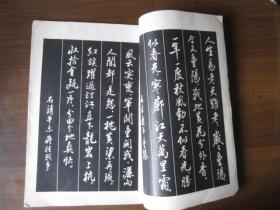 人生易老天難老歲歲重陽
今又重陽戰地黃花分外香
一年一度秋風勁不似春光勝
似春光寥廓江天萬里霜
右采桑子重陽
風雲突變軍閥重開戰灑向
人間都是怨一枕黃粱再現
紅旗躍過汀江直下龍岩上杭
收拾金甌一片分田分地真忙
右清平樂蔣桂戰爭